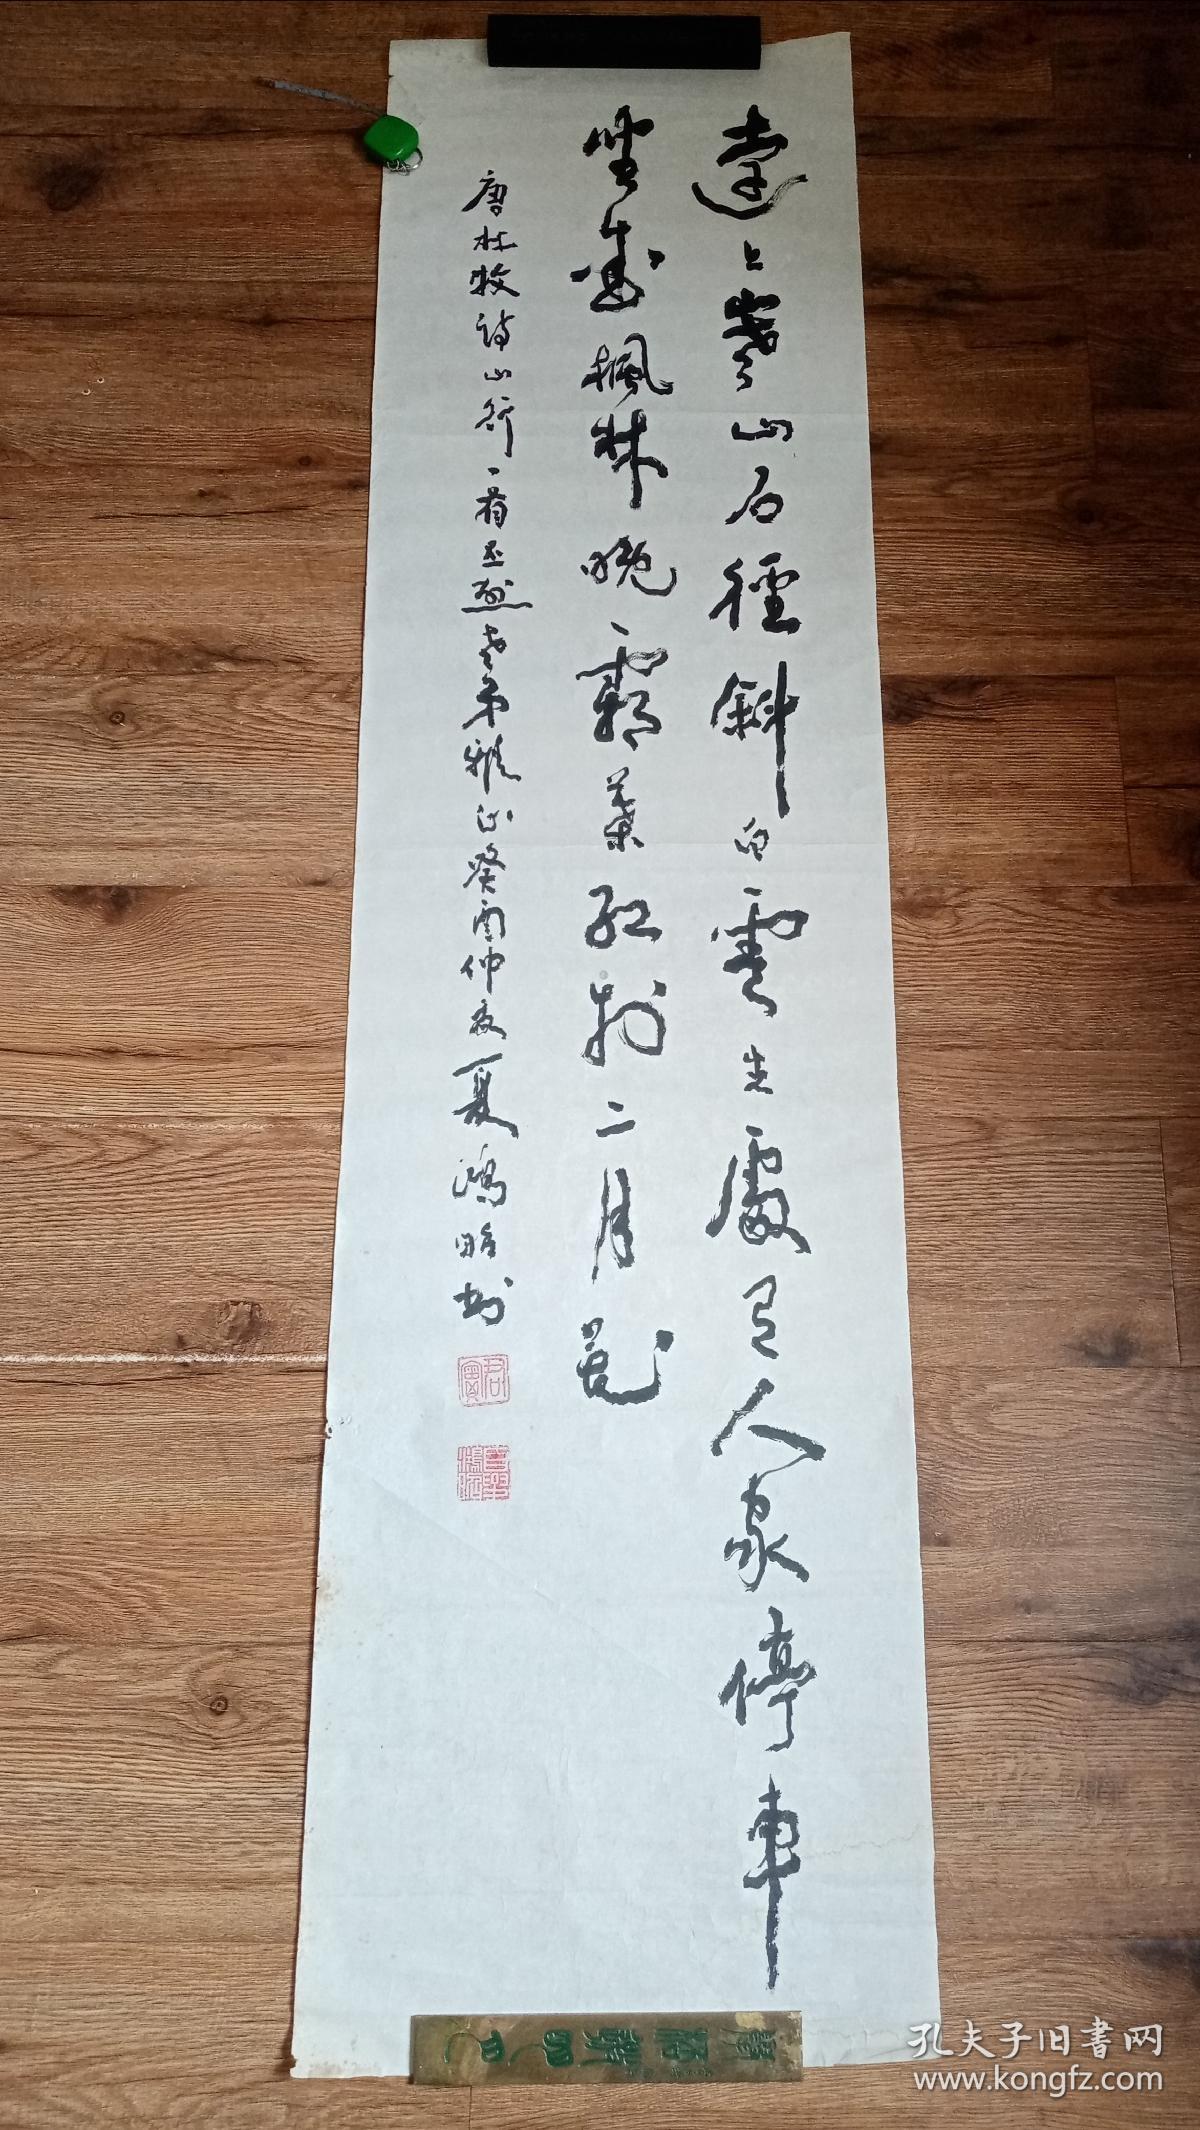 遠上寒山石徑斜白雲生處有人家停車
坐愛楓林晚霜葉紅於二月花
唐杜牧詩山行一首丕烈老弟雅正癸酉仲夏夏鴻昭書
孔夫子旧书网
www.kongfz.com